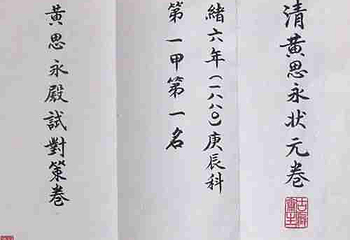 清黃思永状元卷
緒六年(一八八〇)庚辰科
第一甲第一名
黃思永殿試對策卷